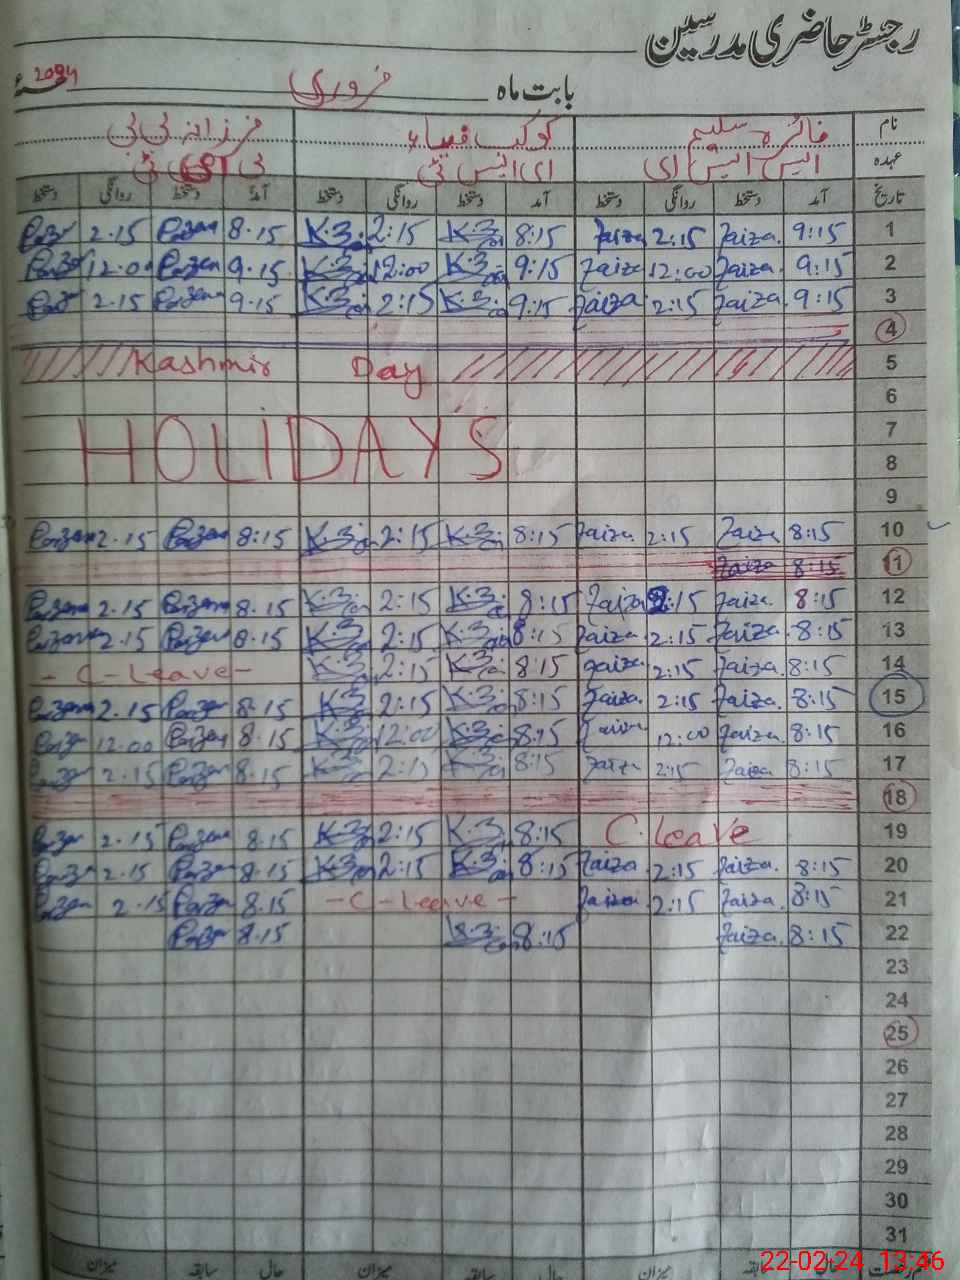 رجسٹر حاضری مدرسین
بابت ماہ فروری 2024ء
نام فائزہ سلیم کوکب ضیاء فرزانہ بی بی
عہدہ ایس ایس ای ای ایس ٹی پی ای ٹی
تاریخ آمد دستخط روانگی دستخط آمد دستخط روانگی دستخط آمد دستخط روانگی دستخط
1 9:15 Faiza. 2:15 Faiza 8:15 K.Zia 2:15 K.Zia 8.15 2.15
2 9:15 Faiza. 12:00 Faiza 9:15 K.Zia 12:00 K.Zia 9.15 12.00
3 9:15 Faiza. 2:15 Faiza 9:15 K.Zia 2:15 K.Zia 9.15 2.15
4
5 Kashmir Day
6
7 HOLIDAYS
8
9
10 8:15 Faiza 2:15 Faiza 8:15 K.Zia 2:15 K.Zia 8:15 2.15
11 8:15 Faiza
12 8:15 Faiza 2:15 Faiza 8:15 K.Zia 2:15 K.Zia 8.15 2.15
13 8:15 Faiza. 2:15 Faiza 8:15 K.Zia 2:15 K.Zia 8.15 2.15
14 8:15 Faiza. 2:15 Faiza 8:15 K.Zia 2:15 K.Zia - C - Leave -
15 8:15 Faiza. 2:15 Faiza 8:15 K.Zia 2:15 K.Zia 8.15 2.15
16 8:15 Faiza. 12:00 Faiza 8:15 K.Zia 12:00 K.Zia 8.15 12.00
17 8:15 Faiza 2:15 Faiza 8:15 K.Zia 2:15 K.Zia 8.15 2.15
18
19 C. Leave 8:15 K.Zia 2:15 K.Zia 8.15 2.15
20 8:15 Faiza. 2:15 Faiza 8:15 K.Zia 2:15 K.Zia 8.15 2.15
21 8:15 Faiza. 2:15 Faiza - C - Leave - 8.15 2.15
22 8:15 Faiza. 8:15 K.Zia 8.15
23
24
25
26
27
28
29
30
31
حال سابقہ میزان حال سابقہ میزان حال سابقہ میزان
22-02-24 13:46